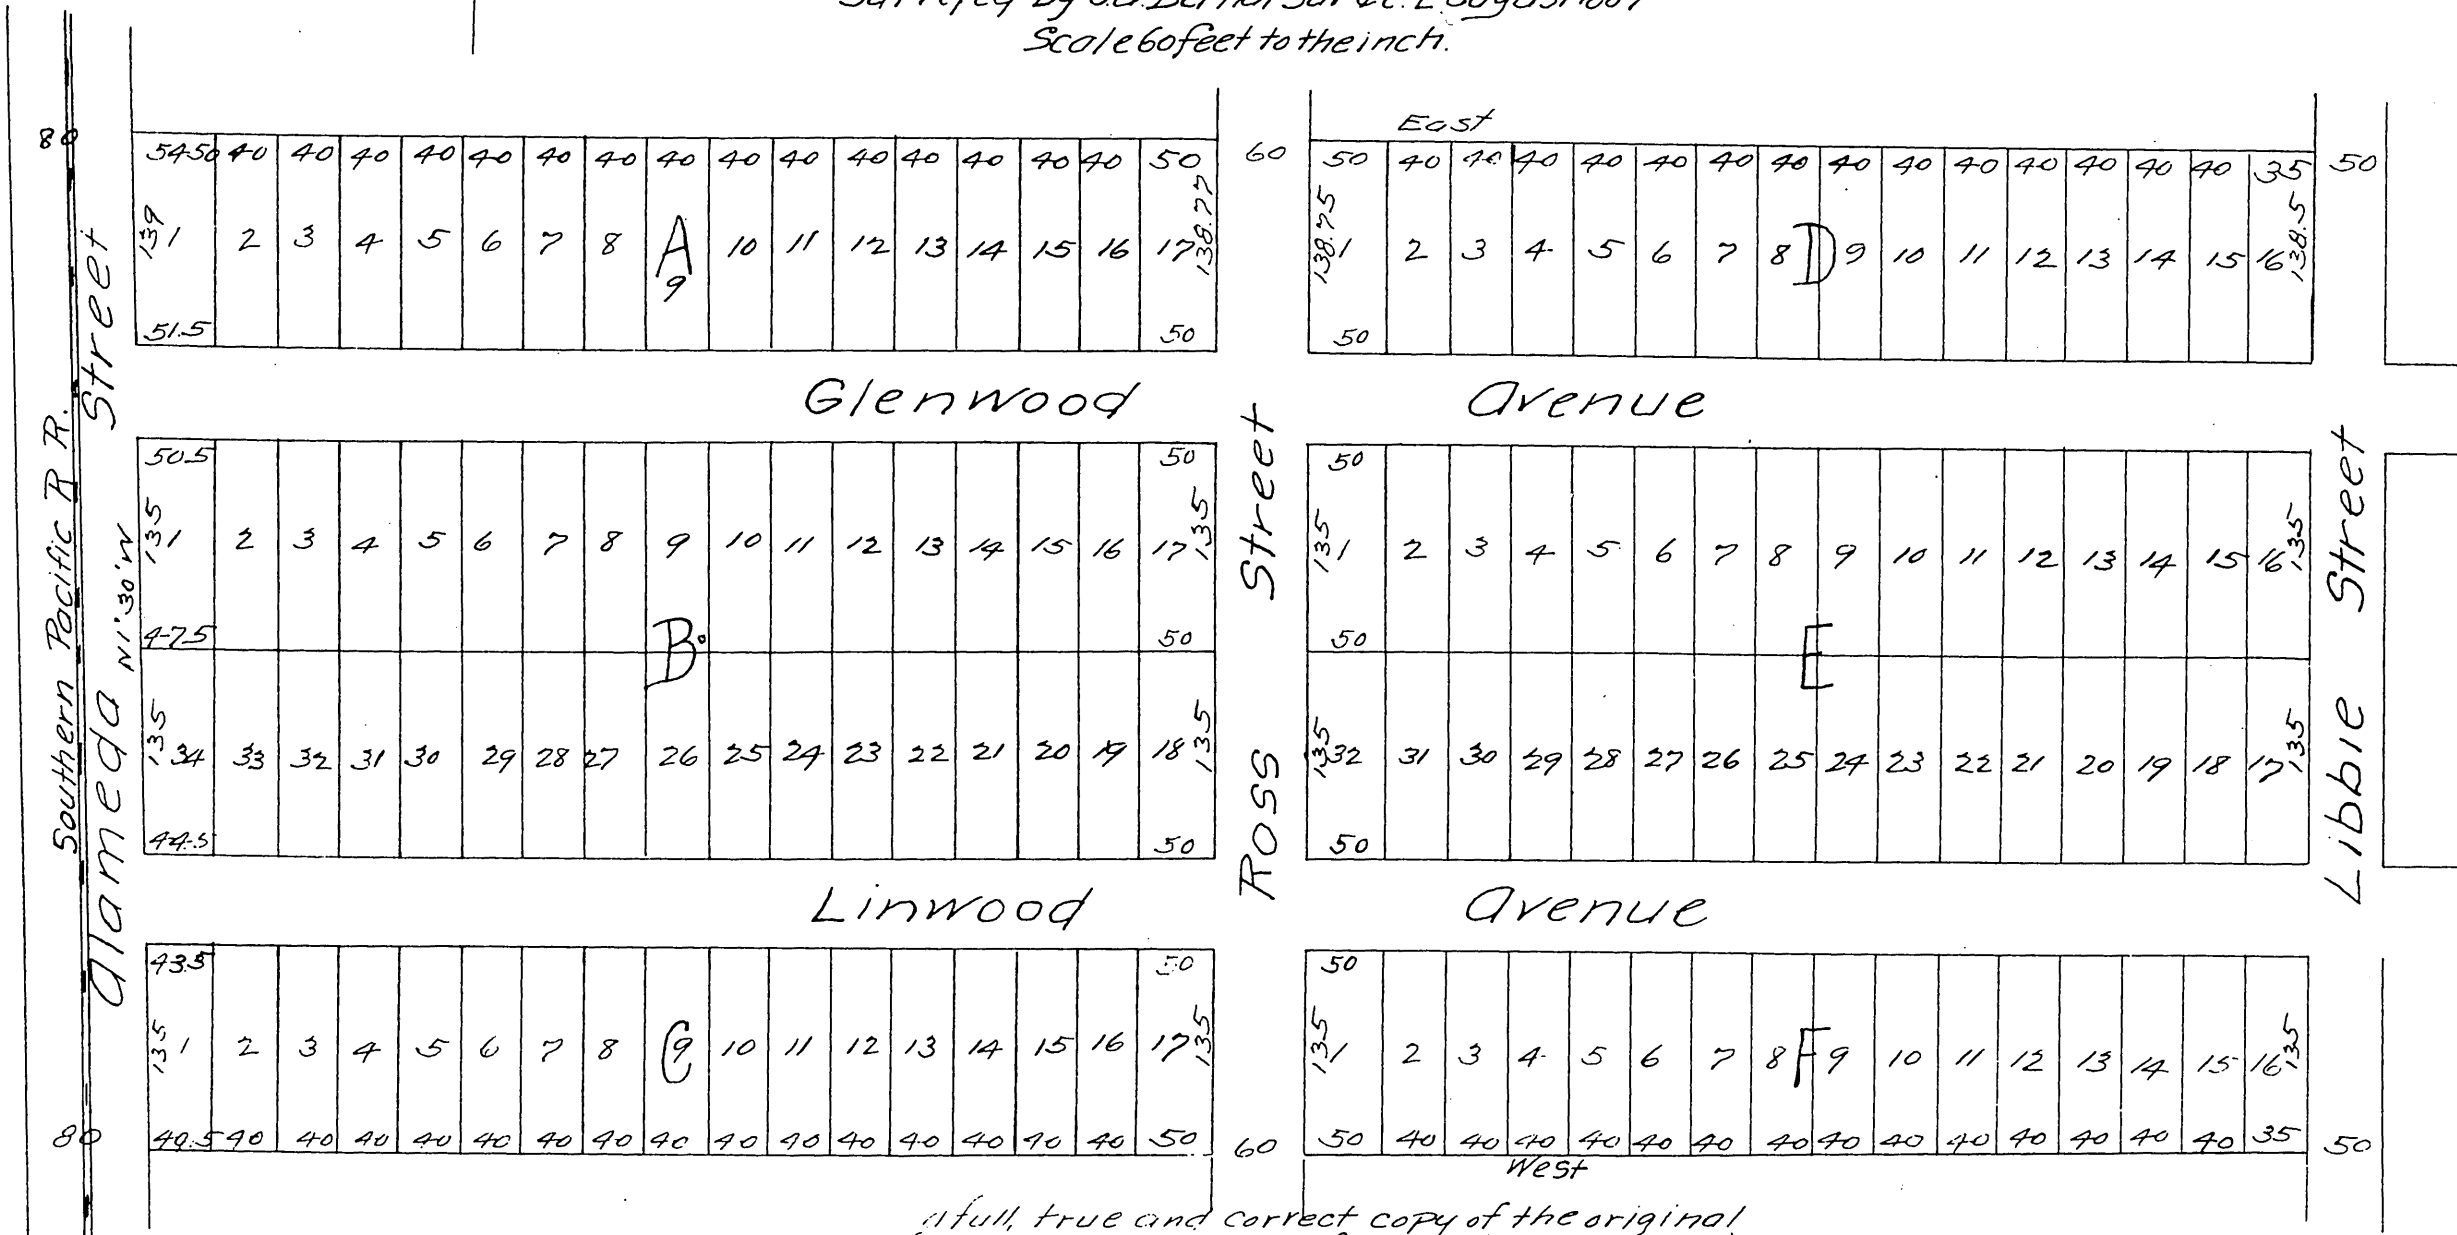 Scale 60 feet to the inch.
East
80
54.50 40 40 40 40 40 40 40 40 40 40 40 40 40 40 40 50
60
50 40 40 40 40 40 40 40 40 40 40 40 40 40 40 35
50
139 1 2 3 4 5 6 7 8 A 9 10 11 12 13 14 15 16 17 138.77
138.75 1 2 3 4 5 6 7 8 D 9 10 11 12 13 14 15 16 138.5
51.5 50
50
Glenwood Avenue
50.5 50
50
135 1 2 3 4 5 6 7 8 9 10 11 12 13 14 15 16 17 135
135 1 2 3 4 5 6 7 8 9 10 11 12 13 14 15 16 135
47.5 B. 50
50 E
135 34 33 32 31 30 29 28 27 26 25 24 23 22 21 20 19 18 135
135 32 31 30 29 28 27 26 25 24 23 22 21 20 19 18 17 135
44.5 50
50
Linwood Avenue
43.5 50
50
135 1 2 3 4 5 6 7 8 C 9 10 11 12 13 14 15 16 17 135
135 1 2 3 4 5 6 7 8 F 9 10 11 12 13 14 15 16 135
80
40.5 40 40 40 40 40 40 40 40 40 40 40 40 40 40 40 50
60
50 40 40 40 40 40 40 40 40 40 40 40 40 40 40 35
50
West
Southern Pacific R R.
Alameda Street
N1°30'W
Ross Street
Libbie Street
a full, true and correct copy of the original